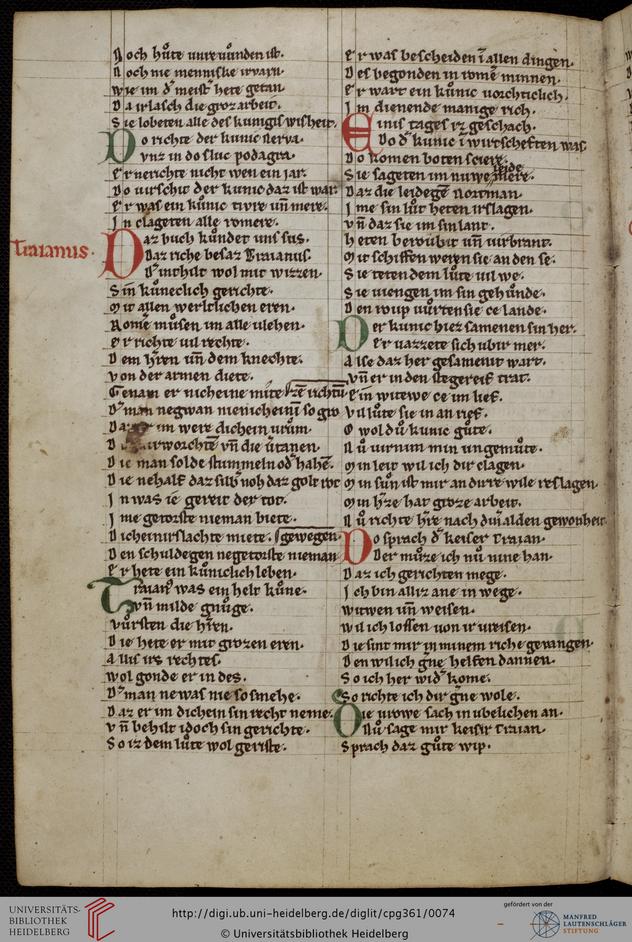 Noch hůte
Noch nie menniske
wie im d' meist' hete getan
Da irlasch die groz arbeit.
Sie lobeten alle des kunigis wisheit.
Do richte der kunic nerva.
vnz in do sluc podagra.
Er nerichte nicht wen ein jar.
Do virschit der kunic daz ist war
Er was ein kůnic tivre vn̄ mere.
In clageten alle romere.
Traianus.
Daz buch kůndet uns sus.
Daz riche besaz Traianus.
sin kůneclich gerichte.
Mit allen werltlichen eren.
Rome můsen im alle vlehen.
Er richte vil rechte.
Dem h'ren vn̄ dem knechte.
von der armen diete.
Genam er nicheine miete
Die man solde stummeln od' hahē.
Die nehalf daz silb' noh daz golt rot
In was ie gereit der tot.
Ime getorste nieman biete.
Dicheinir slachte miete. gewegen.
Den schuldegen negetorste nieman
Er hete ein kůniclich leben.
Traian' was ein helt kůne.
vn̄ milde gnůge.
vůrsten die h'ren.
Die hete er mit grozen eren.
Allis irs rechtes.
wol gonde er in des.
D' man newas nie so smehe.
Daz er im dichein sin recht neme.
vn̄ behilt idoch sin gerichte.
So iz dem lůte wol geriste.
Er was bescheiden ī allen dingen.
Des begonden in rome minnen.
Er wart ein kůnic vorchticlich.
Im dienende manige rich.
Einis tages iz geschach.
Do d' kunic ī wirtscheften was
Do komen boten sciere.
Sie sageten im nuwe mere. leide
Daz die leidegē nortman.
Ime sin lůt heten irslagen.
vn̄ daz sie im sin lant.
heten beroubit vn̄ virbrant.
Mit schiffen weren sie an den se.
Sie teten dem lůte vil we.
Sie viengen im sin gehůnde.
Den roup vůrten sie ce lande.
Der kunic hiez samenen sin her.
Er vazzete sich vbir mer.
Alse daz her gesamenit wart.
vn̄ er in den stegereif trat.
Ein witewe ce im lief.
vil lůte sie in an rief.
O wol dů kunic gůte.
Nů virnim min ungemůte.
Min leit wil ich dir clagen.
Min sůn ist mir an dirre wile irslagen
Min h'ze hat groze arbeit.
Nů richte h're nach dinī alden gewonheit
Do sprach d' keiser Traian.
Der můze ich nů nine han.
Daz ich gerichten mege.
Ich bin alliz ane in wege.
witwen vn̄ weisen.
wil ich lossen von ir vreisen.
Die sint mir in minem riche gevangen.
Den wil ich g'ne helfen dannen.
So ich her wid' kome.
So richte ich dir g'ne wole.
Die vrowe sach in ubelichen an.
Nů sage mir keisir Traian.
Sprach daz gůte wip.
UNIVERSITÄTS-
BIBLIOTHEK
HEIDELBERG
http://digi.ub.uni-heidelberg.de/diglit/cpg361/0074
© Universitätsbibliothek Heidelberg
gefördert von der
MANFRED
LAUTENSCHLÄGER
STIFTUNG